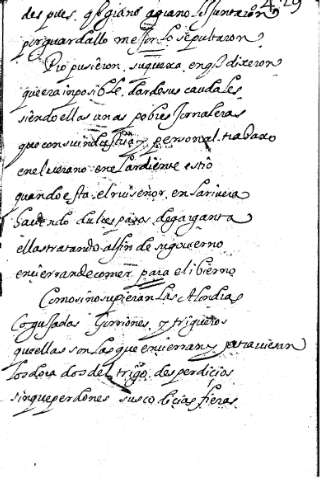 despues, q grano a grano le juntaron
por guardallo mejor lo sepultaron
Pio pusieron, su quexa, en q dixeron
que era inposible, dar de sus caudales
siendo ellas unas pobres Jornaleras
que con su industria y personal trabaxo
en el verano en el ardiente estio
quando esta, el ruiseñor, en la rivera
haciendo dulces pasos de garganta
ellas tratando al fin de su govierno
encierran de comer para el ibierno
Como si no supieran las Alondras
Cogujadas Gorriones, y trigueros
que ellas son las que encierran y atraviesan
los dorados del trigo, desperdicios
sin que perdonen sus codicias fieras